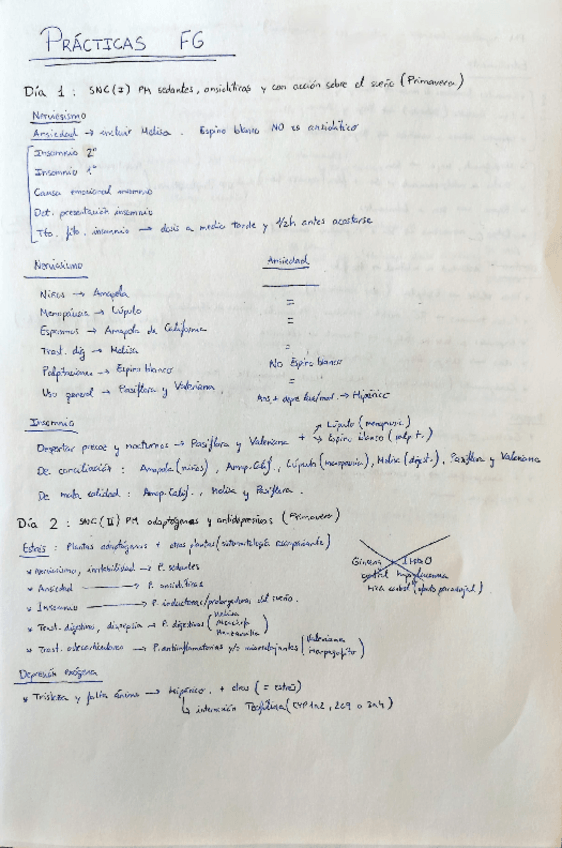 PRÁCTICAS FG
Día 1 : SNC (I) PM sedantes, ansiolíticas y con acción sobre el sueño (Primavera)
Nerviosismo
Ansiedad → incluir Melisa. Espino blanco NO es ansiolítico
Insomnio 2º
Insomnio 1º
Causa emocional insomnio
Det. presentación insomnio
Tto. fito. insomnio → dosis a media tarde y 1/2h antes acostarse
Nerviosismo Ansiedad
Niños → Amapola =
Menopausia → Lúpulo =
Espasmos → Amapola de California =
Trast. dig → Melisa
Palpitaciones → Espino blanco No Espino blanco
Uso general → Pasiflora y Valeriana =
Ans. + depre leve/mod. → Hipéric
Insomnio
Despertar precoz y nocturnos → Pasiflora y Valeriana + → Lúpulo (menopausia)
→ Espino blanco (palp t.)
De conciliación : Amapola (niños), Amap. Calif., Lúpulo (menopausia), Melisa (digest.), Pasiflora y Valeriana
De mala calidad : Amap. Calif., Melisa y Pasiflora.
Día 2 : SNC (II) PM adaptógenas y antidepresivas (Primavera)
Estrés : Plantas adaptógenas + otras plantas (sintomatología acompañante)
* Nerviosismo, irritabilidad → P. sedantes
* Ansiedad → P. ansiolíticas
* Insomnio → P. inductoras/prolongadoras del sueño.
* Trast. digestivo, dispepsia → P. digestivas (Melisa
Manzanilla)
* Trast. osteoarticulares → P. antiinflamatorias y/o miorrelajantes (Valeriana
Harpagofito)
Ginseng IMAO
control hipoglucemia
HTA control (efecto paradojal)
Depresión exógena
* Tristeza y falta ánimo → Hipérico. + otras (= estrés)
↳ interacción Teofilina (CYP1A2, 2C9 o 3A4)